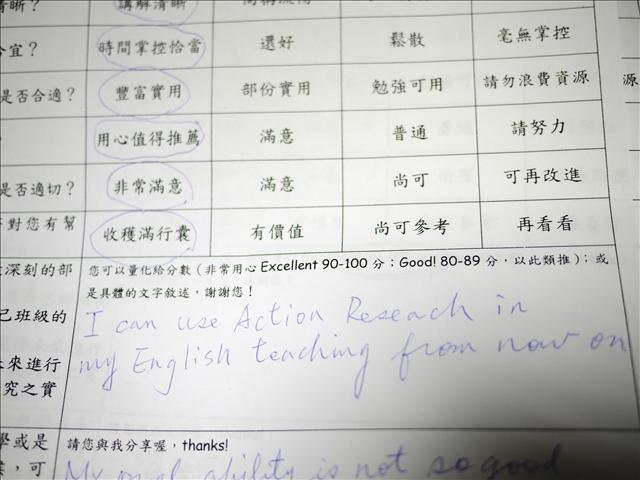 清晰？ 講解清晰
合宜？ 時間掌控恰當 還好 鬆散 毫無掌控
是否合適？ 豐富實用 部份實用 勉強可用 請勿浪費資源 源
用心值得推薦 滿意 普通 請努力
是否適切？ 非常滿意 滿意 尚可 可再改進
對您有幫 收穫滿行囊 有價值 尚可參考 再看看
深刻的部 您可以量化給分數（非常用心 Excellent 90-100 分；Good! 80-89 分，以此類推）；或
是具體的文字敘述，謝謝您！
己班級的 I can use Action Reseach in
來進行 my English teaching from now on
究之實
學或是 請您與我分享喔，thanks!
，可 My oral ability is not so good